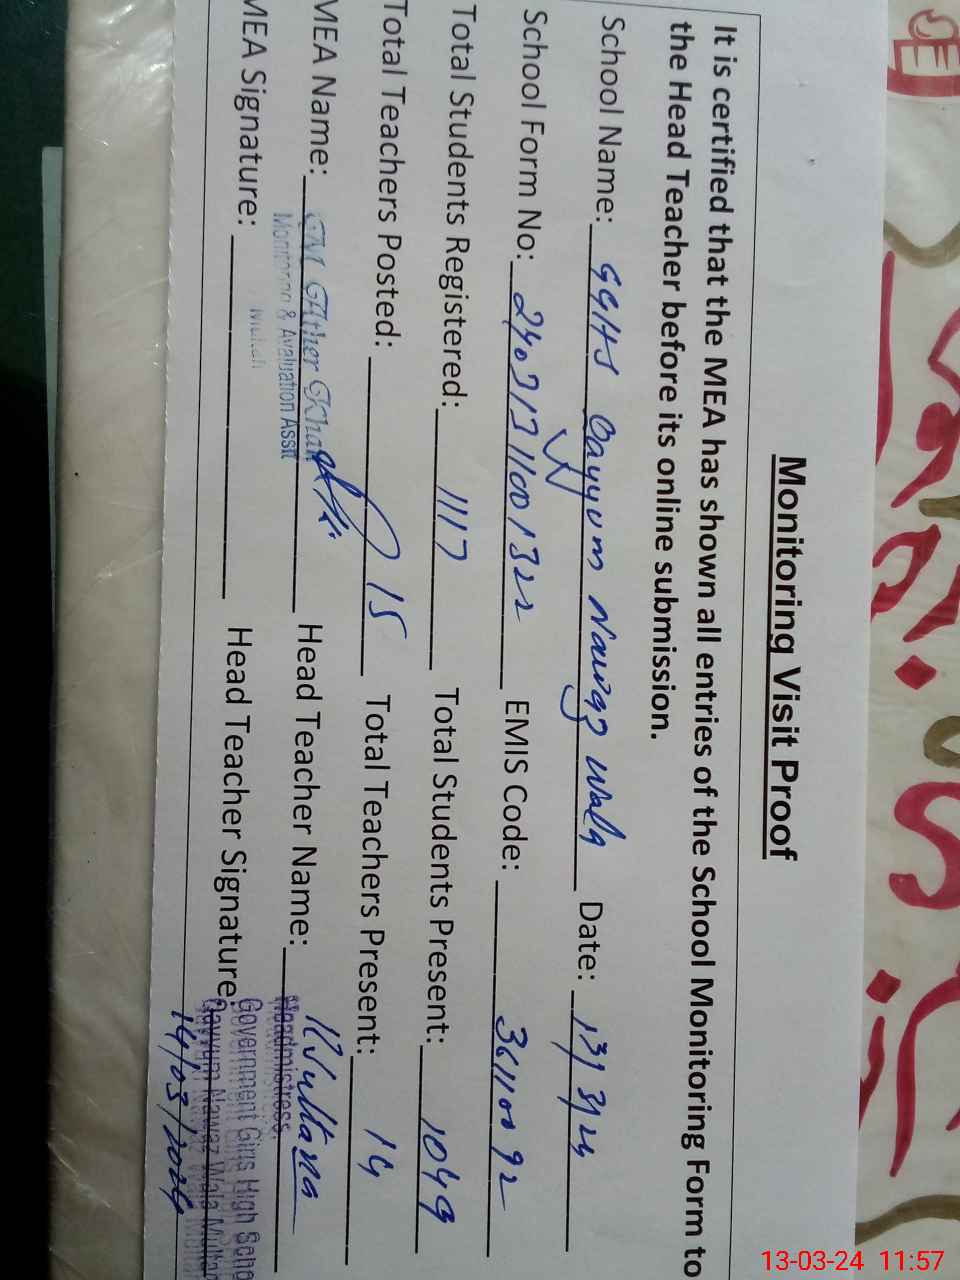 Monitoring Visit Proof
It is certified that the MEA has shown all entries of the School Monitoring Form to
the Head Teacher before its online submission.
School Name: GGHS Qayyum Nawaz Wala Date: 13/3/24
School Form No: 24031311001322 EMIS Code: 36110092
Total Students Registered: 1117 Total Students Present: 1049
Total Teachers Posted: 15 Total Teachers Present: 14
MEA Name: GM GAther GKhan Head Teacher Name: R Sultana
& Avaluation Assit
Headmistress,
MEA Signature: Head Teacher Signature:
Government Girls High Scho
Qayyum Nawaz Wala Multan
14/03/2024
13-03-24 11:57